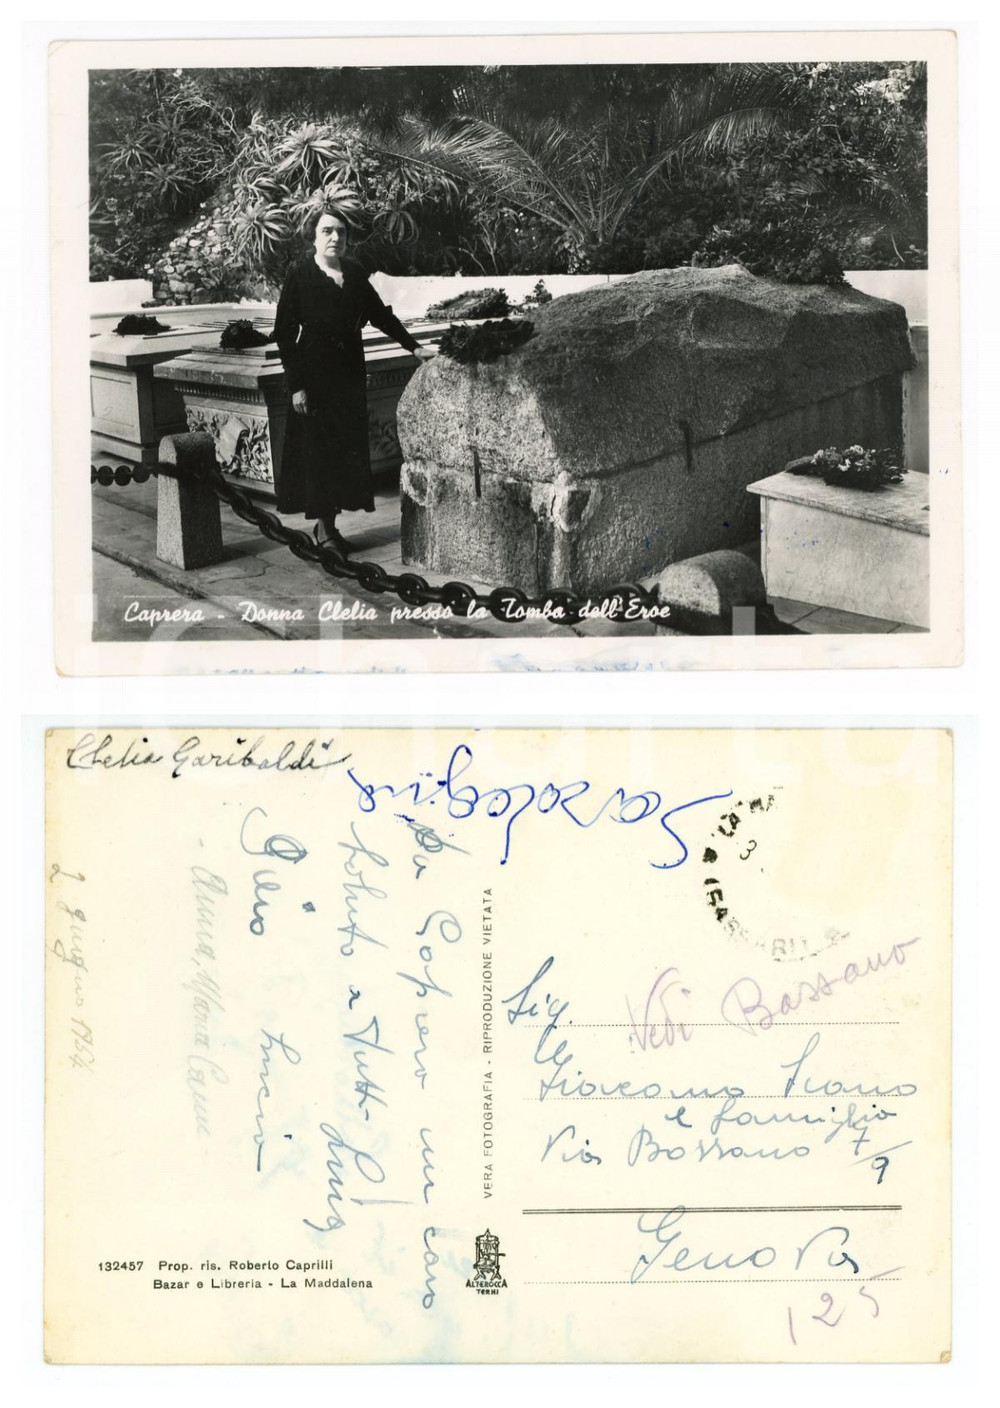 Caprera - Donna Clelia presso la Tomba dell'Eroe
Clelia Garibaldi
Da Caprera un caro
saluto a Tutti Luigi
Gino Lucia
Anna, Maria
2 giugno 1954
VERA FOTOGRAFIA - RIPRODUZIONE VIETATA
132457 Prop. ris. Roberto Caprilli
Bazar e Libreria - La Maddalena
ALTEROCCA
TERNI
LA MA
3
(SASSARI)
Vedi Bossano
Sig.
Giacomo
e famiglia
Via Bossano 7/9
Genova
125